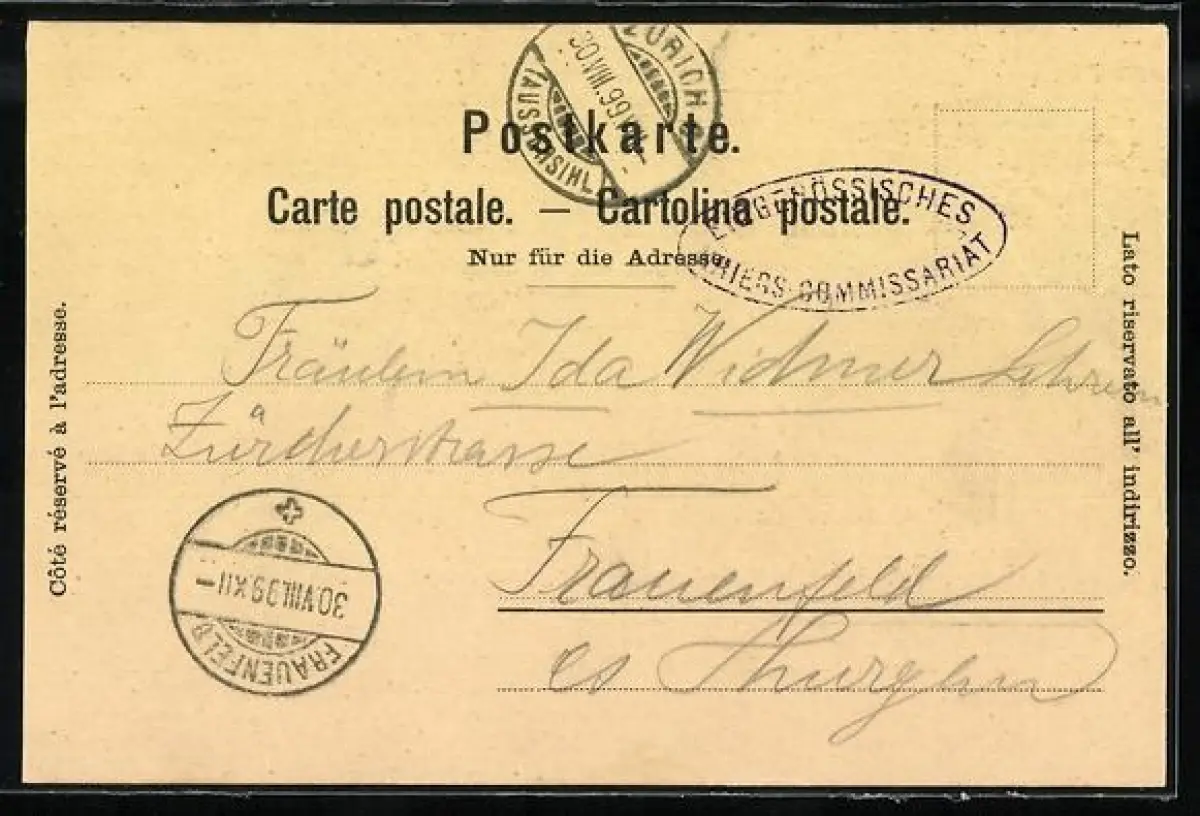 ZÜRICH
30.VIII.99.VI
(AUSSERSIHL
Postkarte.
Carte postale. — Cartolina postale.
Nur für die Adresse.
EIDGENÖSSISCHES
KRIEGS-COMMISSARIAT
Côté réservé à l'adresse.
Lato riservato all' indirizzo.
Fräulein Ida Widmer
Zürcherstrasse
Frauenfeld
Ct Thurgau
30.VIII.99.XII—
FRAUENFELD